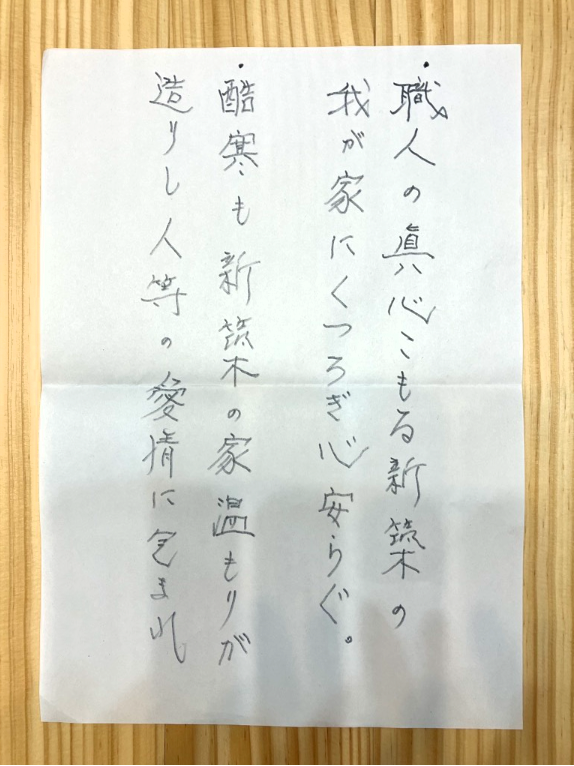 ・職人の真心こもる新築の
我が家にくつろぎ心安らぐ。
・酷寒も新築の家温もりが
造りし人等の愛情に包まれ